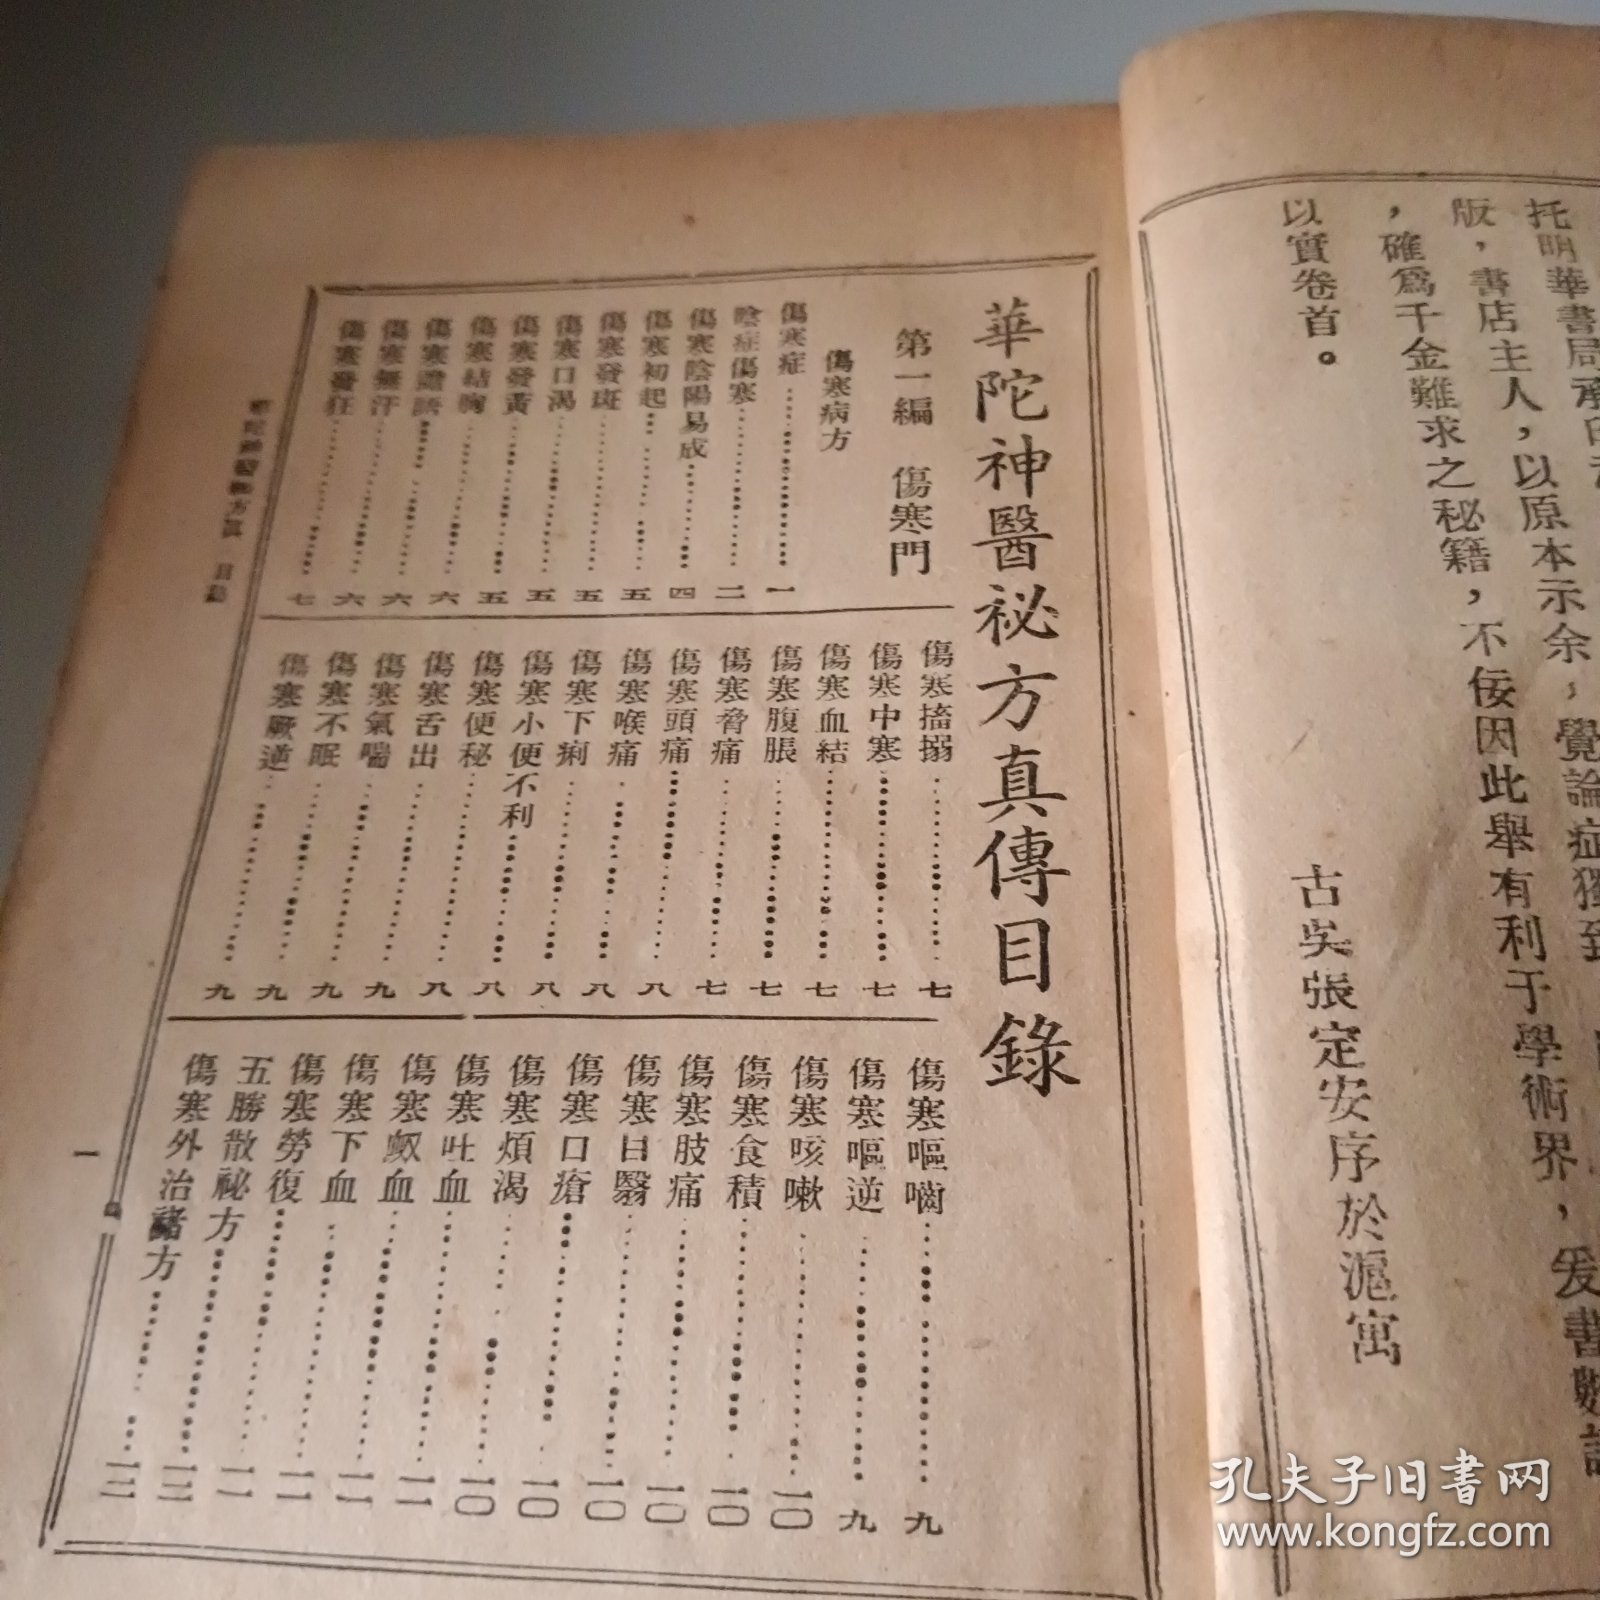 版，書店主人，以原本示余，覺論症獨到
，確爲千金難求之秘籍，不佞因此舉有利于學術界，爰書數語
以實卷首。
古吳張定安序於滬寓
華陀神醫祕方真傳目錄
第一編 傷寒門
傷寒病方
傷寒症…………一
陰症傷寒…………二
傷寒陰陽易成…………四
傷寒初起…………五
傷寒發斑…………五
傷寒口渴…………五
傷寒發黃…………五
傷寒結胸…………五
傷寒譫語…………六
傷寒無汗…………六
傷寒發狂…………七
傷寒搐搦…………七
傷寒中寒…………七
傷寒血結…………七
傷寒腹脹…………七
傷寒脅痛…………七
傷寒頭痛…………八
傷寒喉痛…………八
傷寒下痢…………八
傷寒小便不利…………八
傷寒便秘…………八
傷寒舌出…………九
傷寒氣喘…………九
傷寒不眠…………九
傷寒厥逆…………九
傷寒嘔噦…………九
傷寒嘔逆…………九
傷寒咳嗽…………一〇
傷寒食積…………一〇
傷寒肢痛…………一〇
傷寒目翳…………一〇
傷寒口瘡…………一〇
傷寒煩渴…………一〇
傷寒吐血…………一一
傷寒衄血…………一一
傷寒下血…………一一
傷寒勞復…………一一
五勝散祕方…………一二
傷寒外治諸方…………一二
目錄
一
孔夫子旧書网
www.kongfz.com